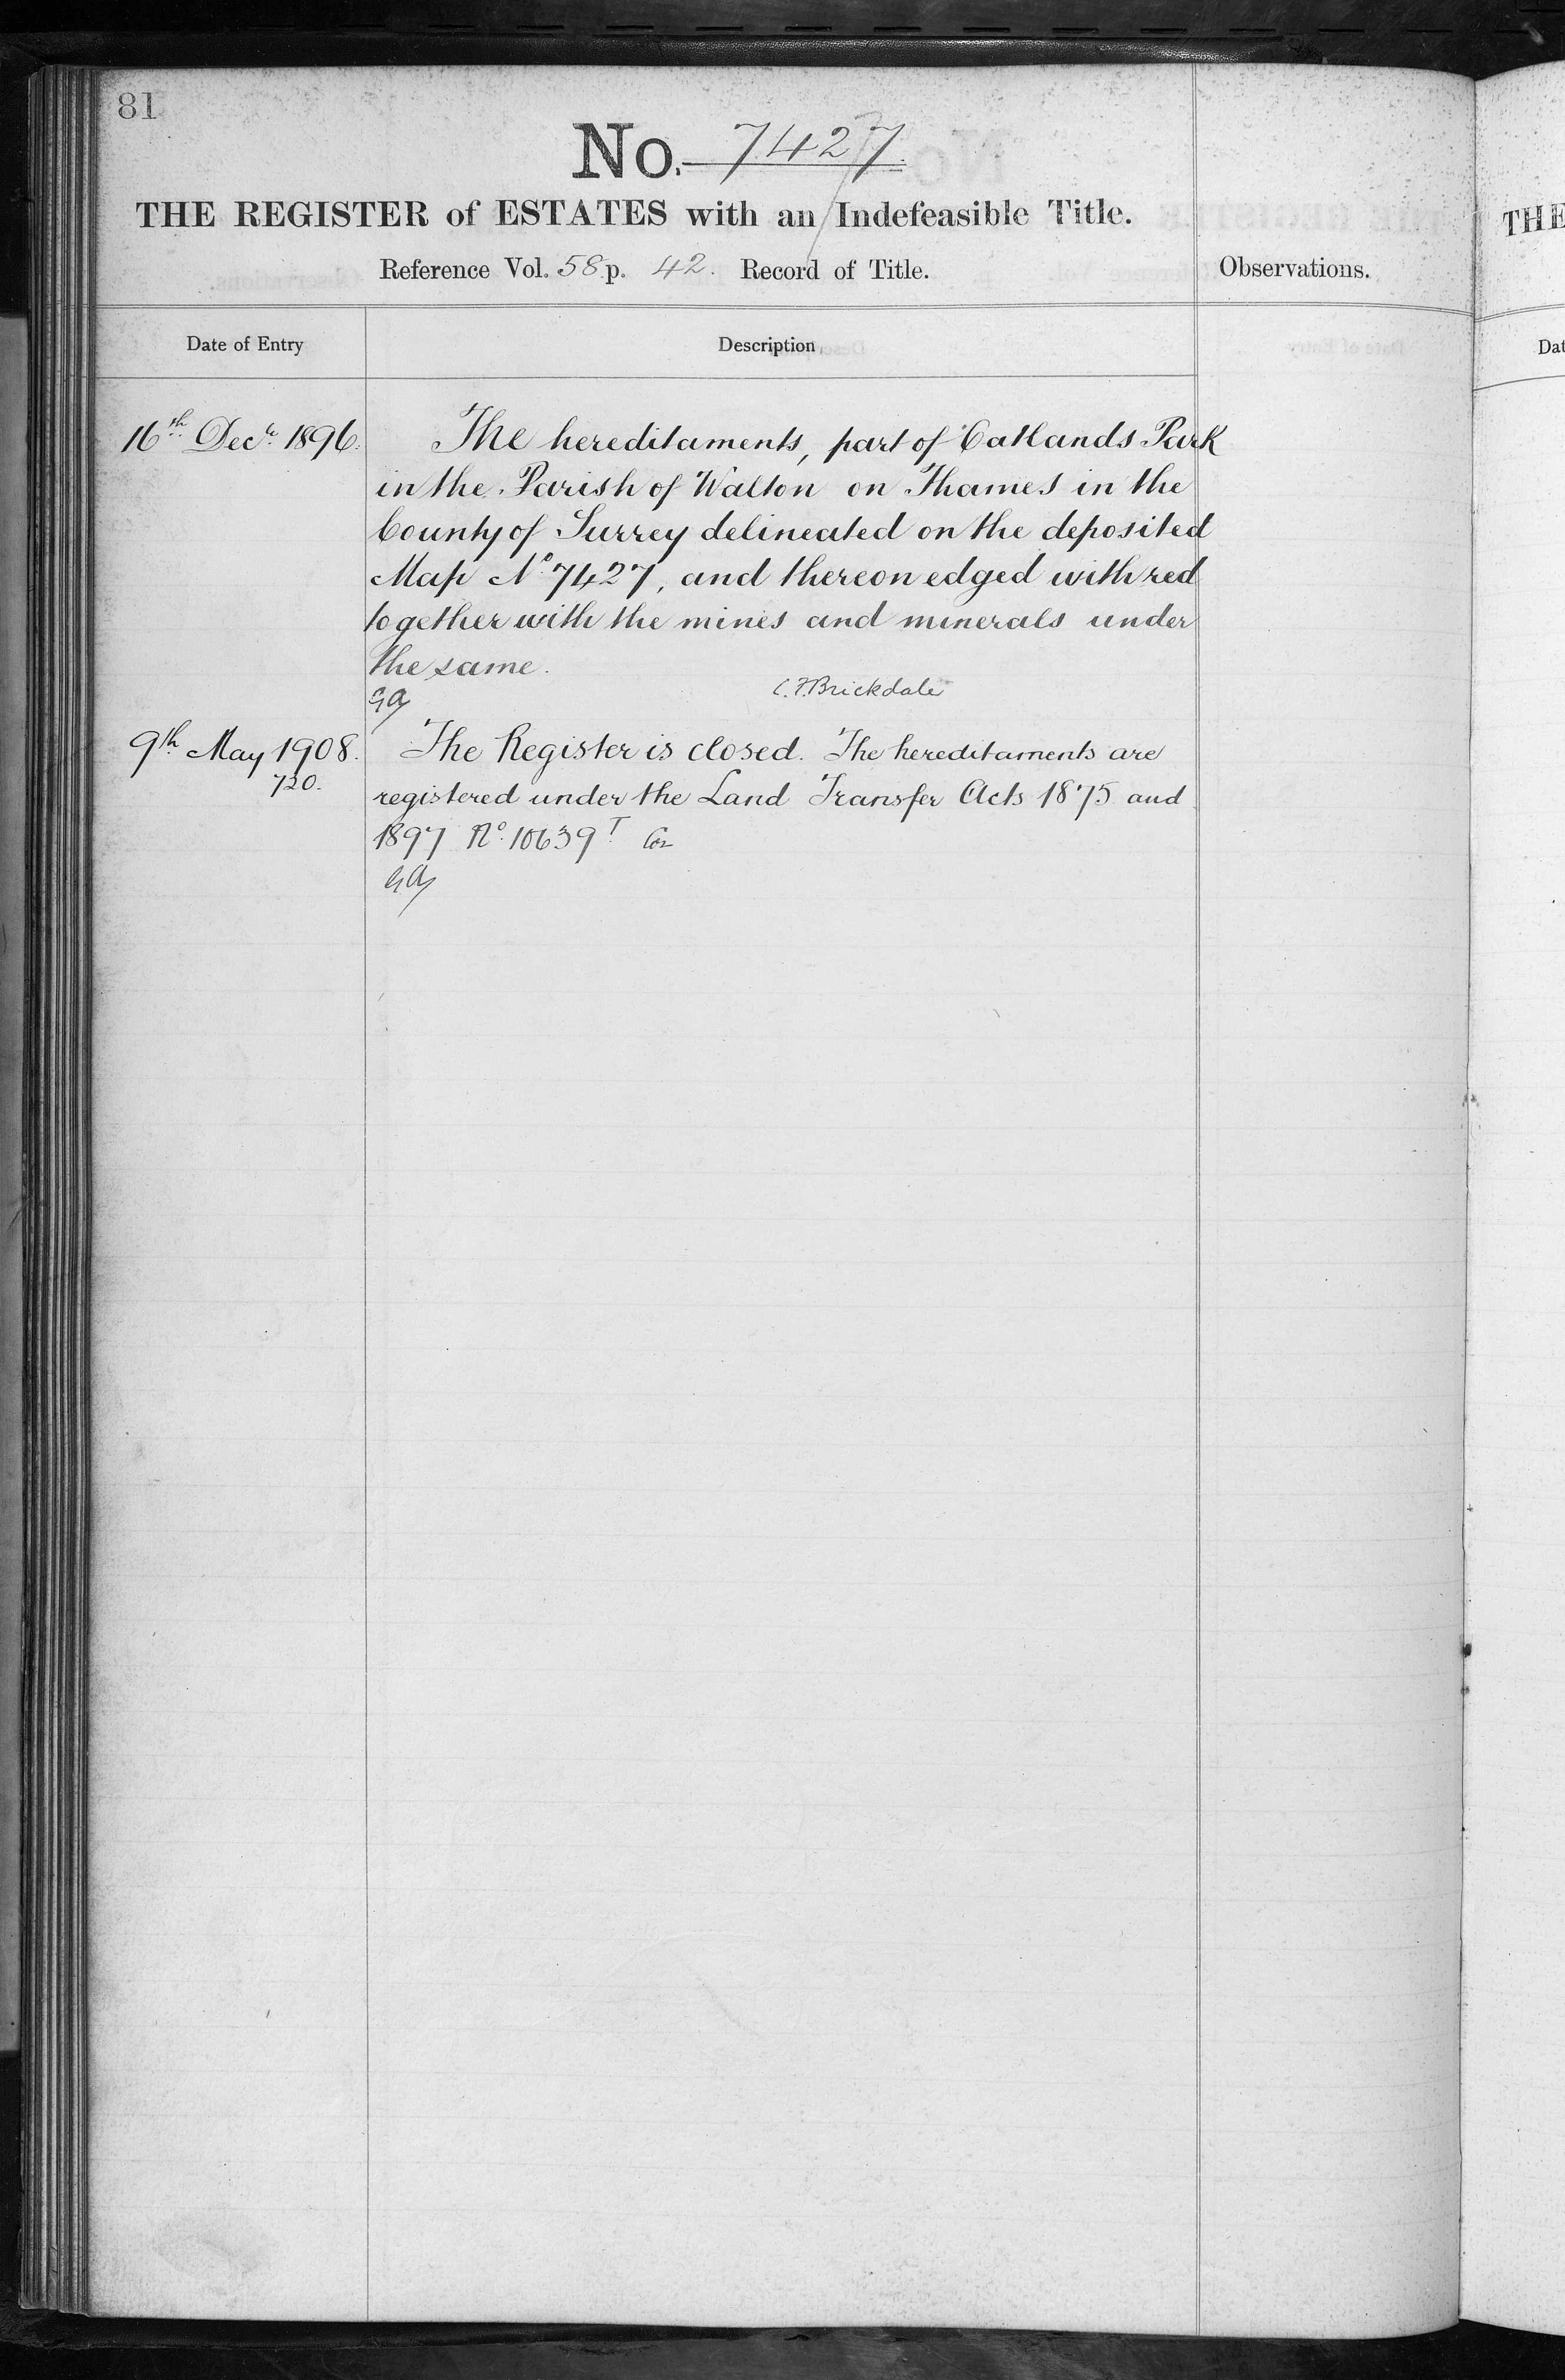 81
No. 7427
THE REGISTER of ESTATES with an Indefeasible Title.
Reference Vol. 58 p. 42. Record of Title.
Observations.
Date of Entry
Description
16th Decr. 1896.
The hereditaments, part of Oatlands Park
in the Parish of Walton on Thames in the
County of Surrey delineated on the deposited
Map No. 7427, and thereon edged with red
together with the mines and minerals under
the same.
C. F. Brickdale
9th May 1908.
720.
The Register is closed. The hereditaments are
registered under the Land Transfer Acts 1875 and
1897 No. 10639T
THE
Dat